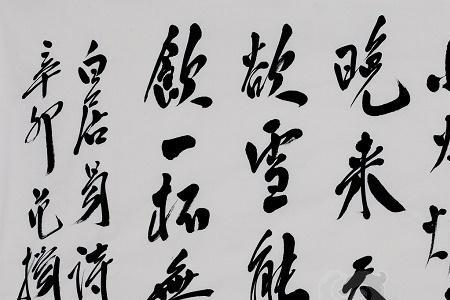 火
晚来天
欲雪能
飲一杯無
白居易诗
辛卯